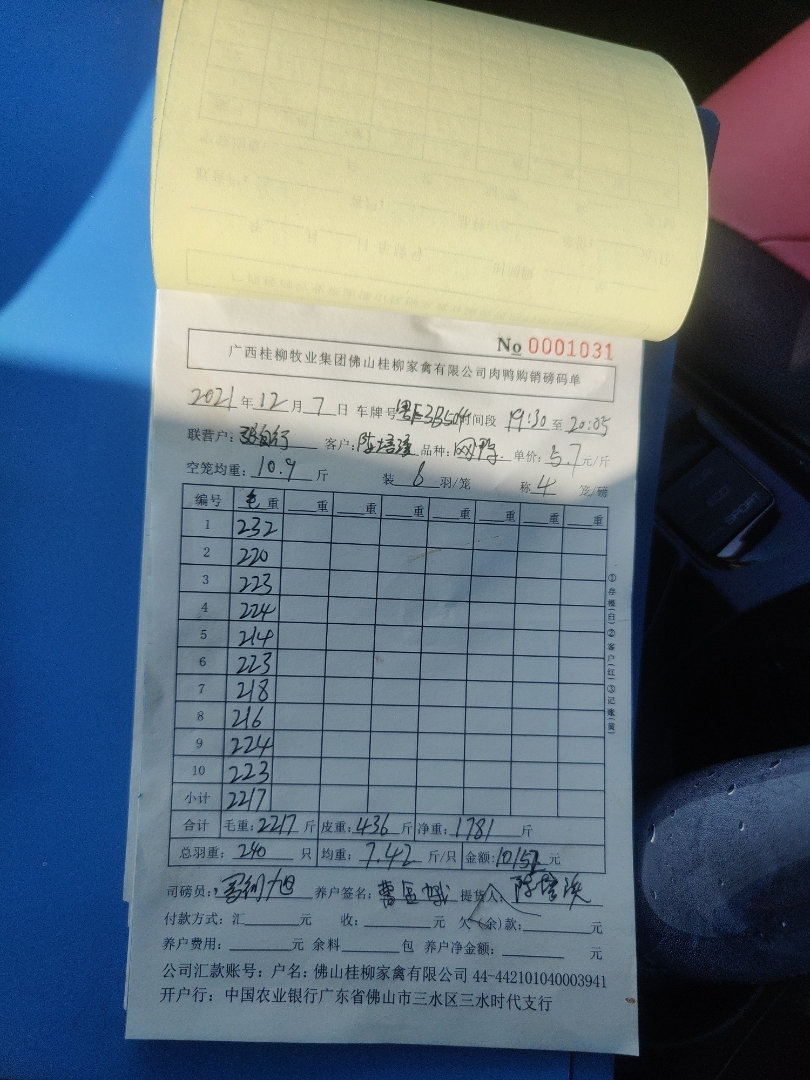 No 0001031
广西桂柳牧业集团佛山桂柳家禽有限公司肉鸭购销磅码单
2021年12月7日 车牌号 粤E3B504 时间段 19:30至20:05
联营户: 客户: 品种: 单价:5.7元/斤
空笼均重:10.9斤 装6羽/笼 称4笼/磅
编号 毛重 重 重 重 重 重 重 重
1 232
2 220
3 223
4 224
5 214
6 223
7 218
8 216
9 224
10 223
小计 2217
合计 毛重:2217斤 皮重:436斤 净重:1781斤
总羽重:240只 均重:7.42斤/只 金额:10152元
司磅员: 养户签名: 提货人:
付款方式:汇 元 收: 元 欠(余)款: 元
养户费用: 元 余料 包 养户净金额: 元
公司汇款账号:户名:佛山桂柳家禽有限公司 44-442101040003941
开户行:中国农业银行广东省佛山市三水区三水时代支行
①存根(白)②客户(红)③记账(黄)